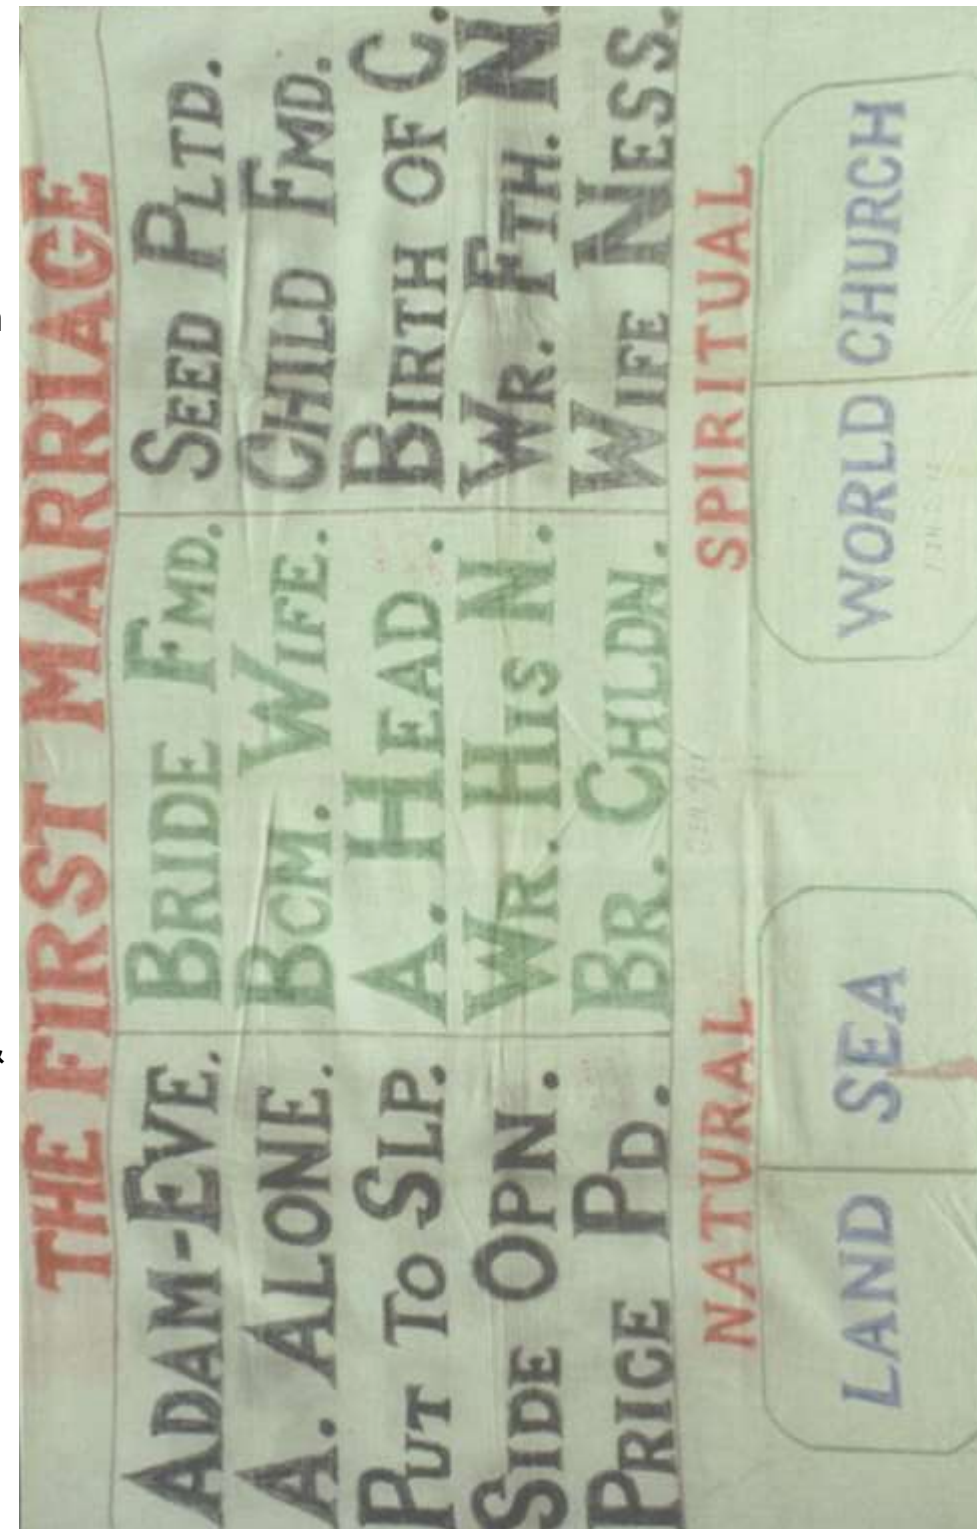 THE FIRST MARRIAGE
ADAM-EVE. BRIDE FMD. SEED PLTD.
A. ALONE. BCM. WIFE. CHILD FMD.
PUT TO SLP. A. HEAD. BIRTH OF C.
SIDE OPN. WR. HIS N. WR. FTH. N.
PRICE PD. BR. CHLDN. WIFE NESS.
NATURAL SPIRITUAL
LAND SEA WORLD CHURCH